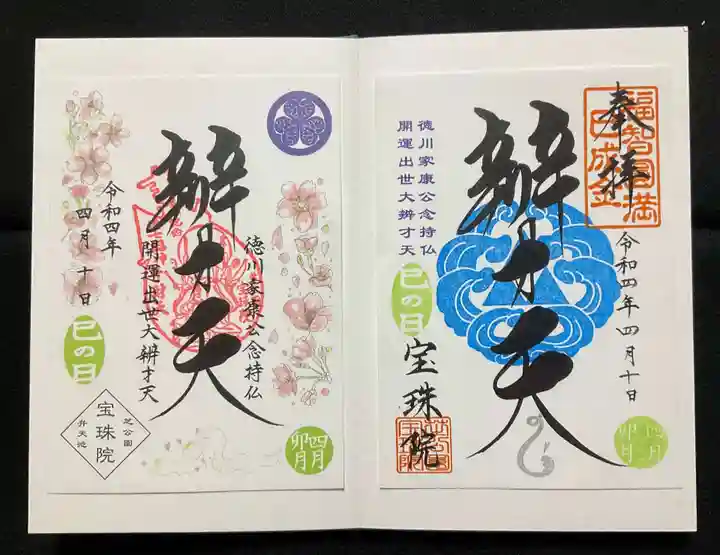 奉拝
辨才天
徳川家康公念持仏
開運出世大辨才天
福智円満
巳成金
令和四年四月十日
巳の日
宝珠院
四月
卯月
辨才天
徳川家康公念持仏
開運出世大辨才天
令和四年
四月十日
巳の日
芝公園
宝珠院
弁天池
四月
卯月